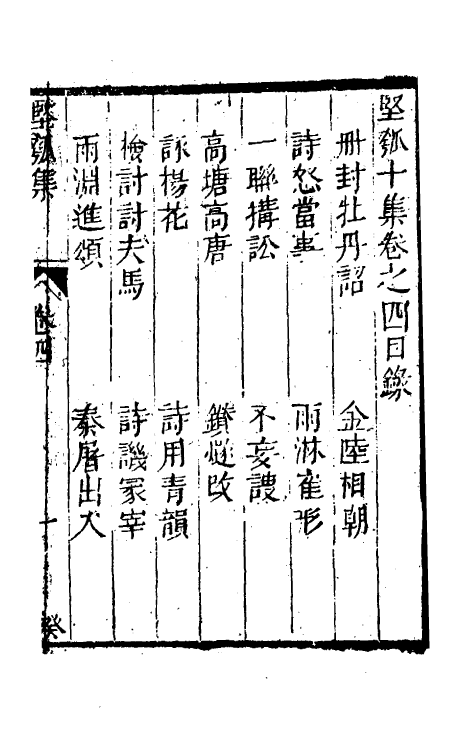 堅瓠十集卷之四目錄
冊封牡丹詔　金陸相朝
詩怒當事　雨淋雀形
一聯搆訟　不妄謢
高塘高唐　鑽燧改
詠楊花　詩用青韻
檢討討夫馬　詩譏冢宰
雨淵進頌　秦屠出犬
堅瓠集　卷四　一　癸